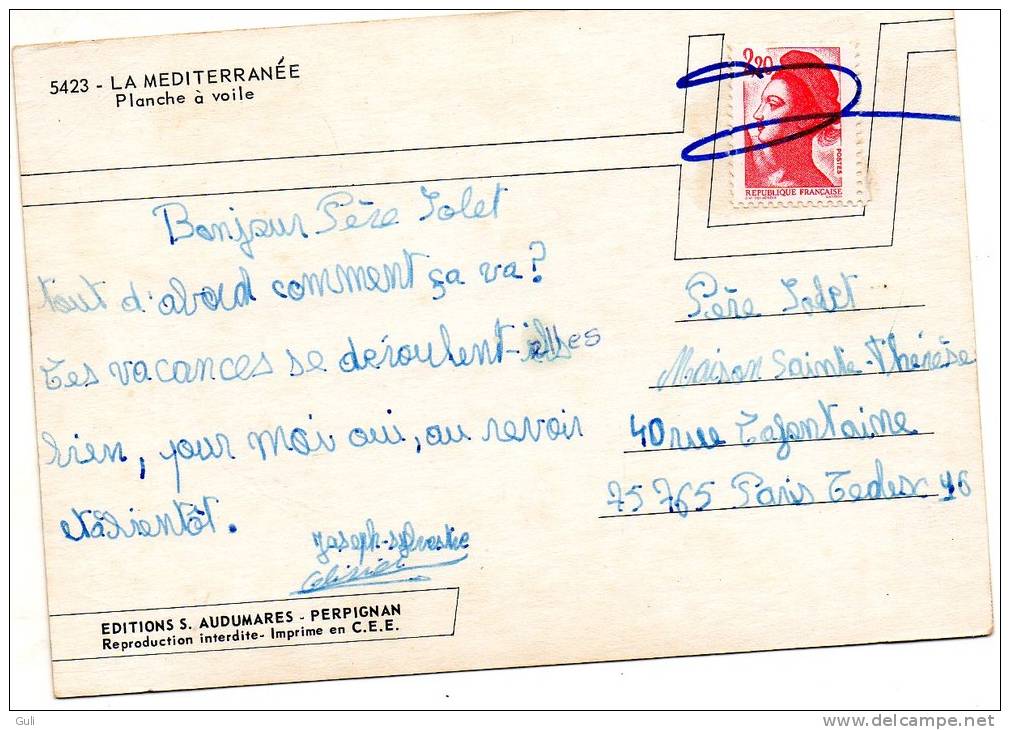 5423 - LA MEDITERRANÉE
Planche à voile
2,20
POSTES
REPUBLIQUE FRANÇAISE
Bonjour Père Jolet
tout d'abord comment ça va?
Les vacances se déroulent-elles
bien, pour moi oui, au revoir
et à bientôt.
Joseph-sylvestre
Olivier
Père Jolet
Maison Sainte-Thérèse
40 rue Lafontaine
75765 Paris Cedex 16
EDITIONS S. AUDUMARES - PERPIGNAN
Reproduction interdite- Imprime en C.E.E.
Guli
www.delcampe.net